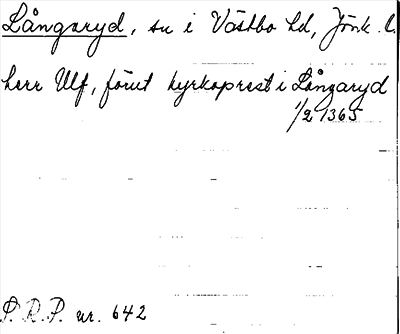 Långaryd, sn i Västbo hd, Jönk. l.
herr Ulf, förut kyrkoprest i Långaryd
1/2 1365
S. R. P. nr. 642